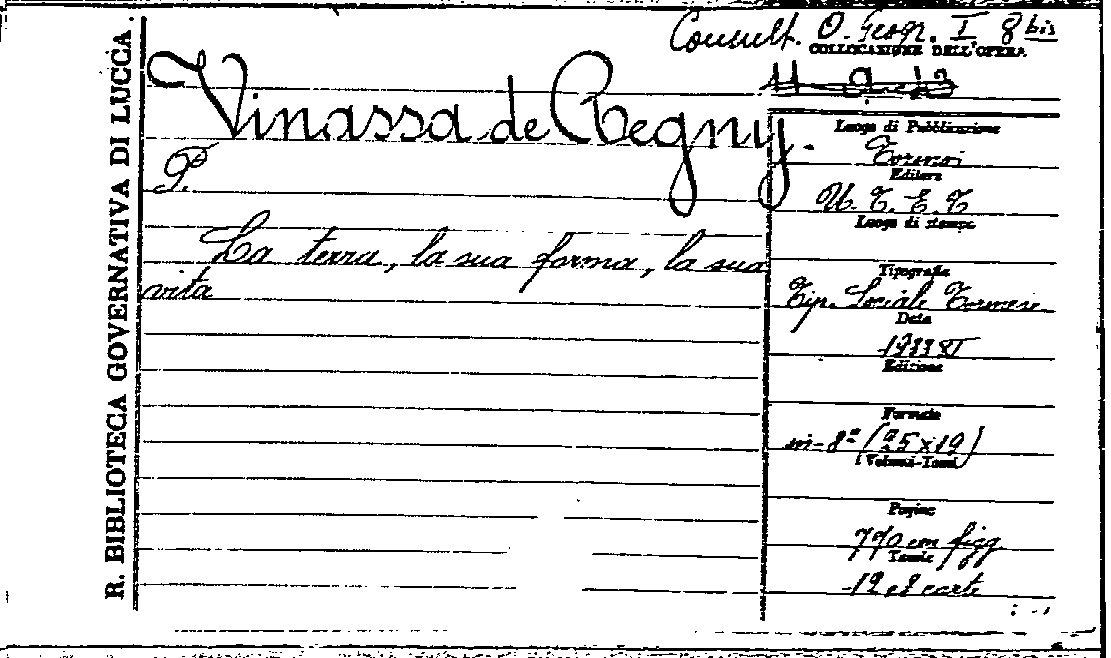 R. BIBLIOTECA GOVERNATIVA DI LUCCA
Consult. O. Geogr. I 8 bis
COLLOCAZIONE DELL'OPERA
Vinassa de Regny.
P.
La terra, la sua forma, la sua
vita
Luogo di Pubblicazione
Torino
Editore
U. T. E. T
Luogo di stampa
Tipografia
Tip. Sociale Torinese
Data
1933 XI
Edizione
Formato
in-8° (25x19)
Volumi-Tomi
Pagine
770 con figg
Tavole
12 e 8 carte